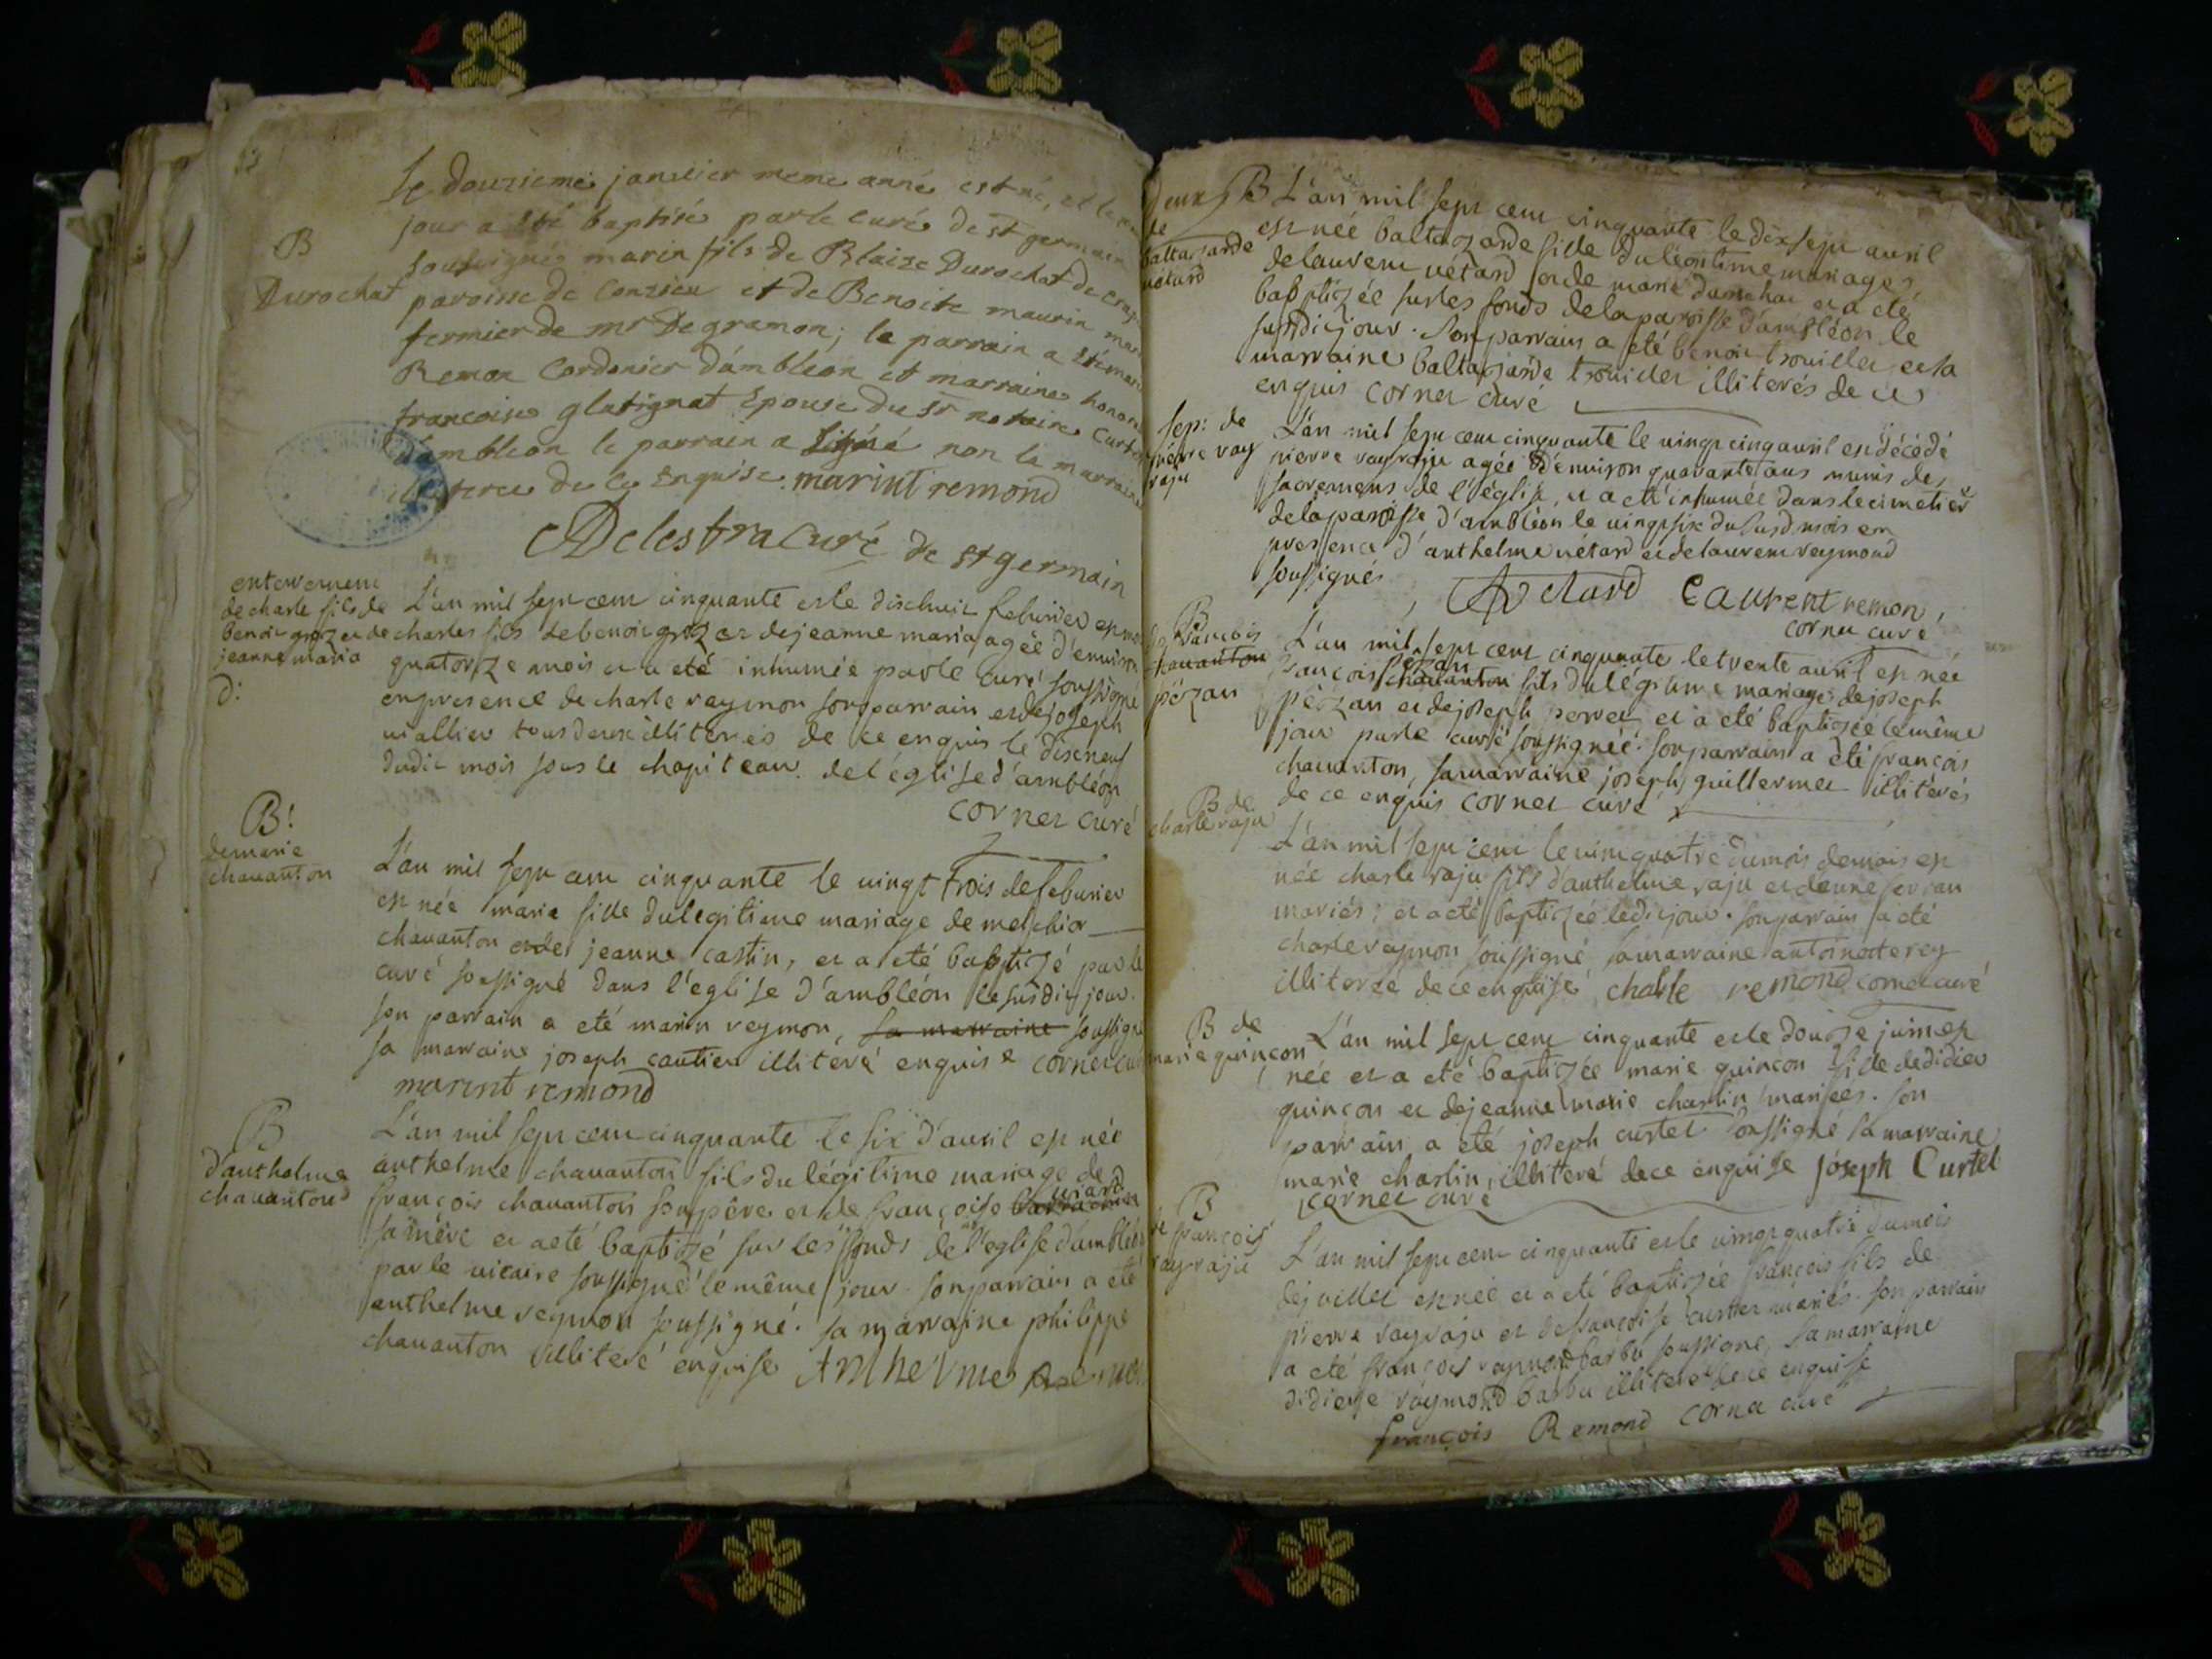 Le douzieme janvier meme année est né, et le
jour a été baptisé par le curé de st germain
B
soussigné marin fils de Blaise Durochat de
Durochat
paroisse de Conzieu et de Benoite maurin
fermier de mr Degramon; le parrain a été
Remon Cordonier d'ambléon et marraine
francoise glatignat Epouse du Sr notaire
d'ambléon le parrain a signé non la marraine
de ce Enquise marint remond
Delestra Curé de st germain
enterrement
de charle fils de
benoit groz et de
jeanne maria
d:
L'an mil sept cent cinquante et le dischuit febvrier est
charles fils de benoit groz et de jeanne maria agée d'environ
quatorze mois et a eté inhumée par le curé soussigné
en presence de charle reymon son parrain et de joseph
viallier tous deux illiterés de ce enquis le discneuf
dudit mois sous le chapiteau de l'église d'ambléon
cornet curé
B!
de marie
chavanton
L'an mil sept cent cinquante le vingt trois de feburier
est née marie fille du legitime mariage de melchior
chavanton et de jeanne castin, et a eté baptizé par le
curé soussigné dans l'église d'ambléon le susdit jour.
son parrain a eté marin reymon, sa marraine soussigné
sa marraine joseph cautier illiteré enquise cornet
marint remond
B
d'anthelme
chavanton
L'an mil sept cent cinquante le six d'avril est née
anthelme chavanton fils du légitime mariage de
françois chavanton son père et de françoise
sa mère et a eté baptizé sur les fonds de l'eglise d'ambléon
par le vicaire soussigné le même jour. son parrain a eté
anthelme reymon soussigné. sa marraine philippe
chavanton illiteré enquise Anthelme
B
de
baltazarde
vétard
L'an mil sept cent cinquante le dix sept avril
est née baltazarde fille du légitime mariage
de laurent vétard et de marie durochat et a eté
baptizée sur les fonds de la paroisse d'ambléon le
susdit jour. son parrain a eté benoit trouillet et sa
marraine baltazarde trouillet illiterés de ce
enquis cornet curé
sep: de
pierre ray
raju
L'an mil sept cent cinquante le vingt cinq avril est décédé
pierre rayraju agée d'environ quarante ans munis des
sacremens de l'église, et a eté inhumée dans le cimetier
de la paroisse d'ambléon le vingt six du susd mois en
presence d'anthelme vétard et de laurent reymond
soussignés
Laurent remon
cornet curé
B
françois
chavanton
pézan
L'an mil sept cent cinquante le trente avril est née
pézan
françois chavanton fils du légitime mariage de joseph
pézan et de joseph perret et a eté baptizée le même
jour par le curé soussignéé. son parrain a été françois
chavanton, sa marraine joseph guillermet illitérés
de ce enquis cornet curé
B de
charle raju
L'an mil sept cent le vint quatre du mois de mais est
née charle raju fils d'anthelme raju et
mariés; et a eté baptizée ledit jour. son parrain a eté
charle reymon soussigné sa marraine
illiterée de ce enquisé charle remond cornet curé
B de
marie quinçon
L'an mil sept cent cinquante et le douze juin est
née et a eté baptizée marie quinçon fille de didier
quinçon et de jeanne marie charlin mariées. son
parrain a eté joseph curtet soussigné sa marraine
marie charlin, illiteré de ce enquise joseph Curtet
cornet curé
B
de françois
rayraju
L'an mil sept cent cinquante et le vingt quatre du mois
de juillet est née et a eté baptizée françois fils de
pierre rayraju et de françoise curtet mariés. son parrain
a eté françois reymond barbu soussigné, sa marraine
didiere raymond barbu illiteré de ce enquise
françois Remond cornet curé